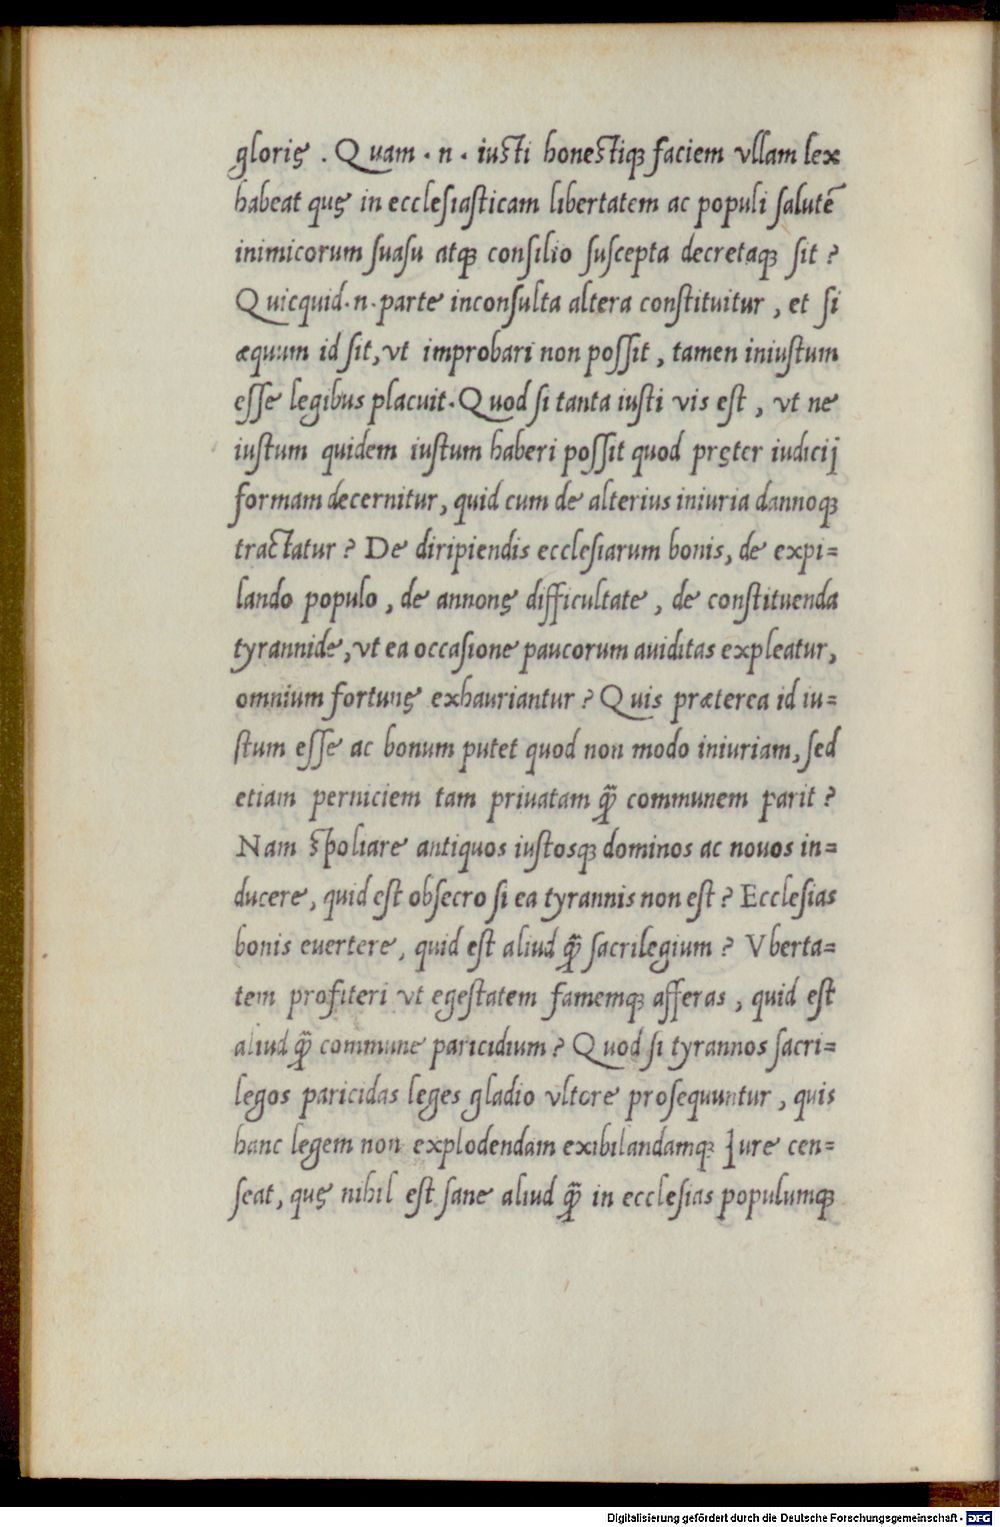 glorię . Quam · n · iusti honestiqꝫ faciem vllam lex
habeat quę in ecclesiasticam libertatem ac populi salutē
inimicorum suasu atqꝫ consilio suscepta decretaqꝫ sit ?
Quicquid · n · parte inconsulta altera constituitur , et si
æquum id sit, vt improbari non possit , tamen iniustum
esse legibus placuit · Quod si tanta iusti vis est , vt ne
iustum quidem iustum haberi possit quod pręter iudicij
formam decernitur, quid cum de alterius iniuria dannoqꝫ
tractatur ? De diripiendis ecclesiarum bonis, de expi=
lando populo , de annonę difficultate , de constituenda
tyrannide, vt ea occasione paucorum auiditas expleatur,
omnium fortunę exhauriantur ? Quis præterea id iu=
stum esse ac bonum putet quod non modo iniuriam, sed
etiam perniciem tam priuatam qꝫ̃ communem parit ?
Nam spoliare antiquos iustosqꝫ dominos ac nouos in=
ducere, quid est obsecro si ea tyrannis non est ? Ecclesias
bonis euertere, quid est aliud qꝫ̃ sacrilegium ? Vberta=
tem profiteri vt egestatem famemqꝫ afferas , quid est
aliud qꝫ̃ commune paricidium ? Quod si tyrannos sacri=
legos paricidas leges gladio vltore prosequuntur , quis
hanc legem non explodendam exibilandamqꝫ Jure cen=
seat, quę nihil est sane aliud qꝫ̃ in ecclesias populumqꝫ
Digitalisierung gefördert durch die Deutsche Forschungsgemeinschaft - DFG